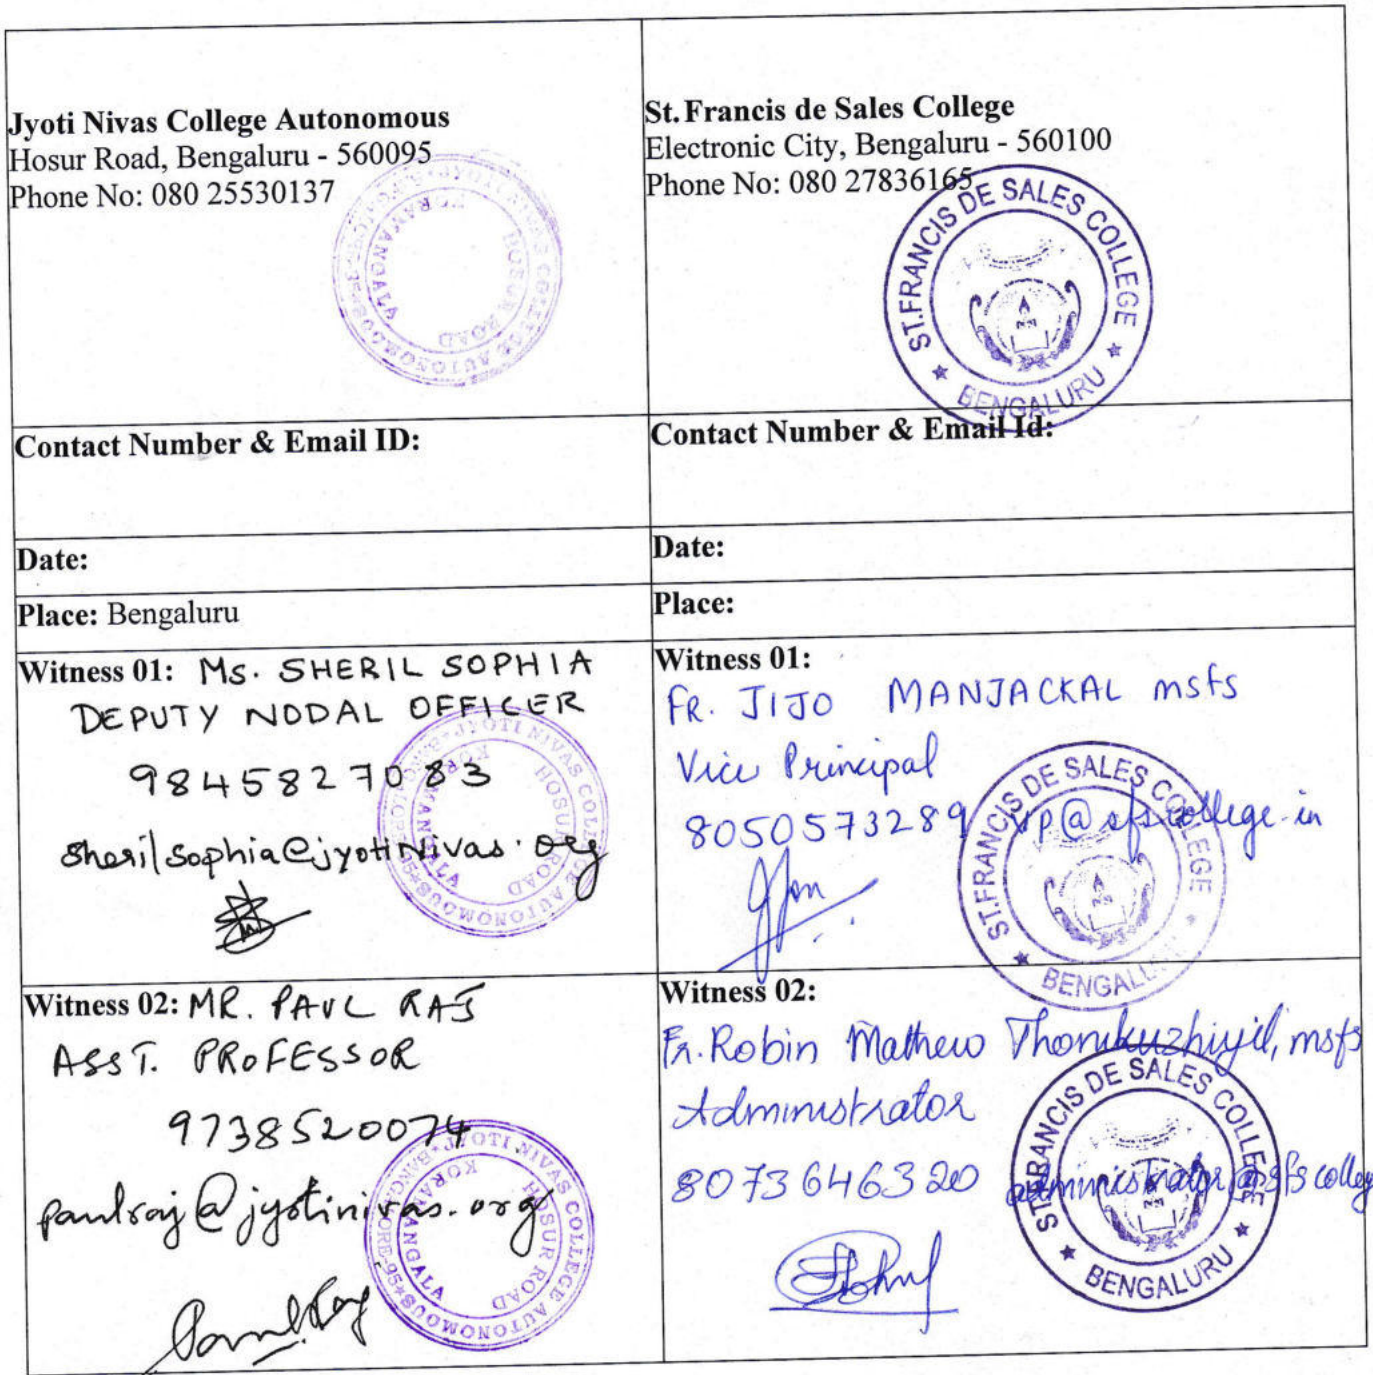 Jyoti Nivas College Autonomous
Hosur Road, Bengaluru - 560095
Phone No: 080 25530137
St. Francis de Sales College
Electronic City, Bengaluru - 560100
Phone No: 080 27836165
ST.FRANCIS DE SALES COLLEGE
BENGALURU
JYOTI NIVAS COLLEGE AUTONOMOUS
HOSUR ROAD
KORAMANGALA
Contact Number & Email ID:
Contact Number & Email Id:
Date:
Date:
Place: Bengaluru
Place:
Witness 01: Ms. SHERIL SOPHIA
DEPUTY NODAL OFFICER
9845827083
sherilsophia@jyotinivas.org
JYOTI NIVAS COLLEGE AUTONOMOUS
HOSUR ROAD
KORAMANGALA
Witness 01:
FR. JIJO MANJACKAL msfs
Vice Principal
8050573289 vp@sfscollege.in
ST.FRANCIS DE SALES COLLEGE
Witness 02: MR. PAUL RAJ
ASST. PROFESSOR
9738520074
paulraj@jyotinivas.org
JYOTI NIVAS COLLEGE AUTONOMOUS
HOSUR ROAD
KORAMANGALA
Witness 02:
Fr. Robin Mathew Thonikuzhiyil, msfs
Administrator
8073646320 administrator@sfscolleg
ST.FRANCIS DE SALES COLLEGE
BENGALURU